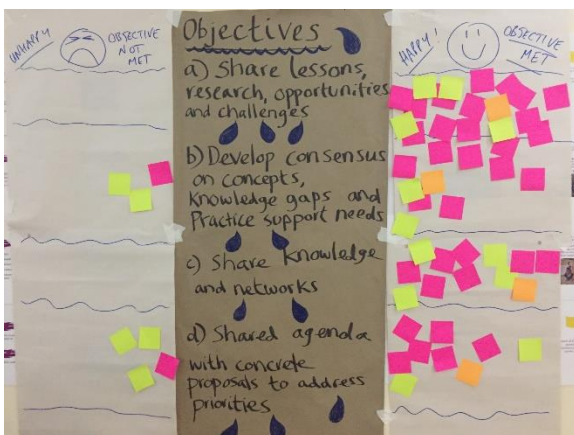 UNHAPPY
OBJECTIVE
NOT
MET
Objectives
a) Share lessons,
research, opportunities
and challenges
b) Develop consensus
on concepts,
Knowledge gaps and
Practice support needs
c) Share knowledge
and networks
d) Shared agenda
with concrete
proposals to address
priorities
HAPPY!
OBJECTIVE
MET